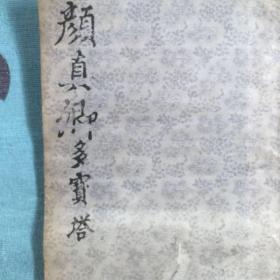 顏真卿多寶塔